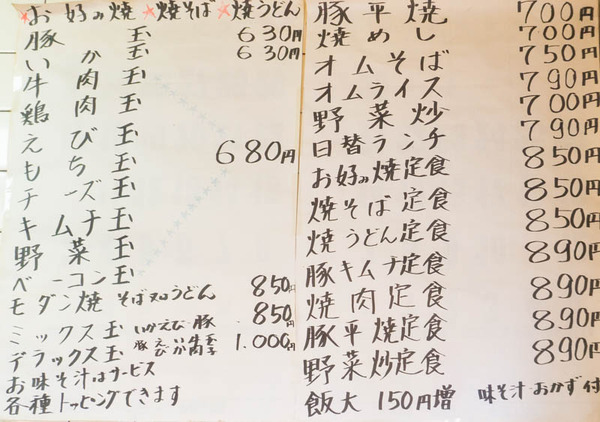 ★お好み焼 ★焼そば ★焼うどん
豚玉 630円
いか玉 630円
牛肉玉
鶏肉玉
えび玉 680円
もち玉
チーズ玉
キムチ玉
野菜玉
ベーコン玉
モダン焼 そば又はうどん 850円
ミックス玉 いかえび豚 850円
デラックス玉 豚えびいか 1.000円
お味そ汁はサービス
各種トッピングできます
豚平焼 700円
焼めし 700円
オムそば 750円
オムライス 790円
野菜炒 700円
日替ランチ 790円
お好み焼定食 850円
焼そば定食 850円
焼うどん定食 850円
豚キムチ定食 890円
焼肉定食 890円
豚平焼定食 890円
野菜炒定食 890円
飯大 150円増 味そ汁おかず付